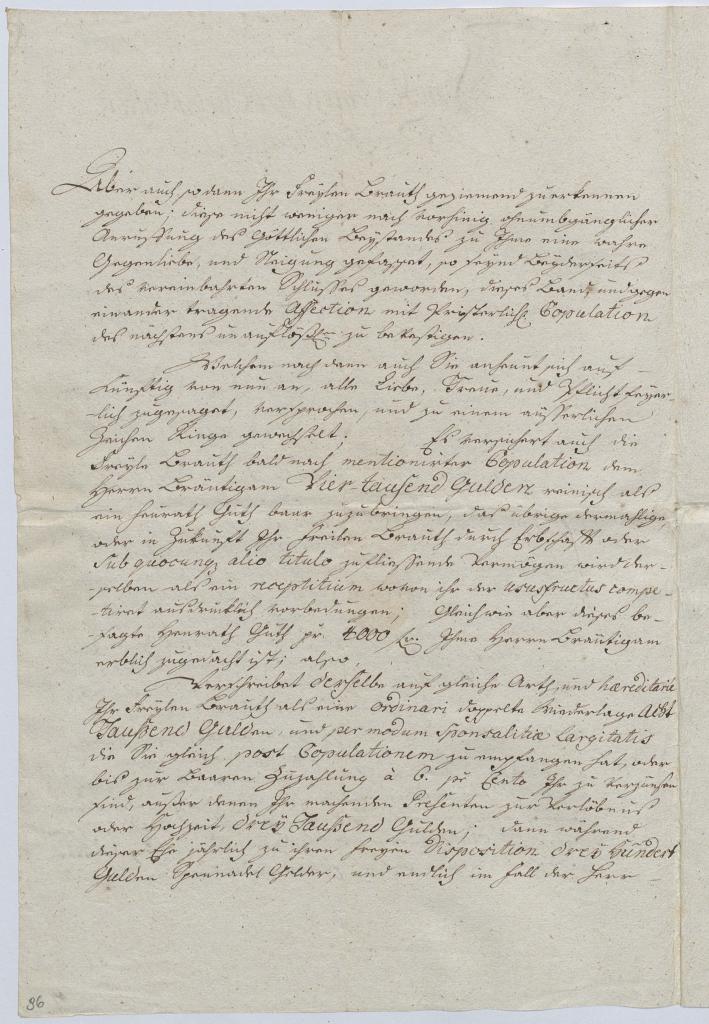 Aber auch, so dann Ihr Freylen Brauth geziemend zu erkennen
gegeben; diese nicht weniger nach vorhinig ohnumbgänglicher
Anruffung des Göttlichen Beystandes zu Ihme eine wahre
Gegenliebe, und Neigung gefasset, so seynd Beyderseits
des vereinbahrten Schlusses geworden, dieses Band und gegen
einander tragende Affection mit Priesterlicher Copulation
des nächstens unauflößlich zu bevestigen.
Welchem nach dann auch Sie anheunt sich auf
künftig von nun an, alle Liebe, Treue, und Pflicht feyer-
lich zugesaget, versprochen, und zu einem äusserlichen
Zeichen Ringe gewechselt; Es versichert auch die
Freyle Brauth bald nach mentionirter Copulation dem
Herrn Bräutigam Vier-tausend Gulden reinisch als
ein heurath Guth baar zuzubringen, das übrige dermahlige
oder in Zukunft Ihr Freilen Brauth durch Erbschafft oder
sub quocunq alio titulo zufliessende Vermögen wird der-
selben als ein receptitium wovon ihr der ususfructus compe-
tiret ausdrücklich vorbedungen; Gleichwie aber dieses be-
sagte Heurath Guth pr. 4000 fl. Ihme Herrn Bräutigam
erblich zugedacht ist; also
Verschreibet derselbe auf gleiche Arth, und hæreditariè
Ihr Freylen Brauth als eine ordinari doppelte Wiederlage Acht
Taußend Gulden, und per modum sponsalitiæ Largitatis
die Sie gleich post Copulationem zu empfangen hat, oder
bis zur Baaren Zuzahlung à 6. pr Cento Ihr zu verzinsen
sind, außer denen Ihr machenden Presenten zur Verlöbnus
oder Hochzeit, drey Taußend Gulden; dann während
dieser Ehe jährlich zu ihren freyen Disposition drey hundert
Gulden Spennadel Gelder, und endlich im fall der Herr
96